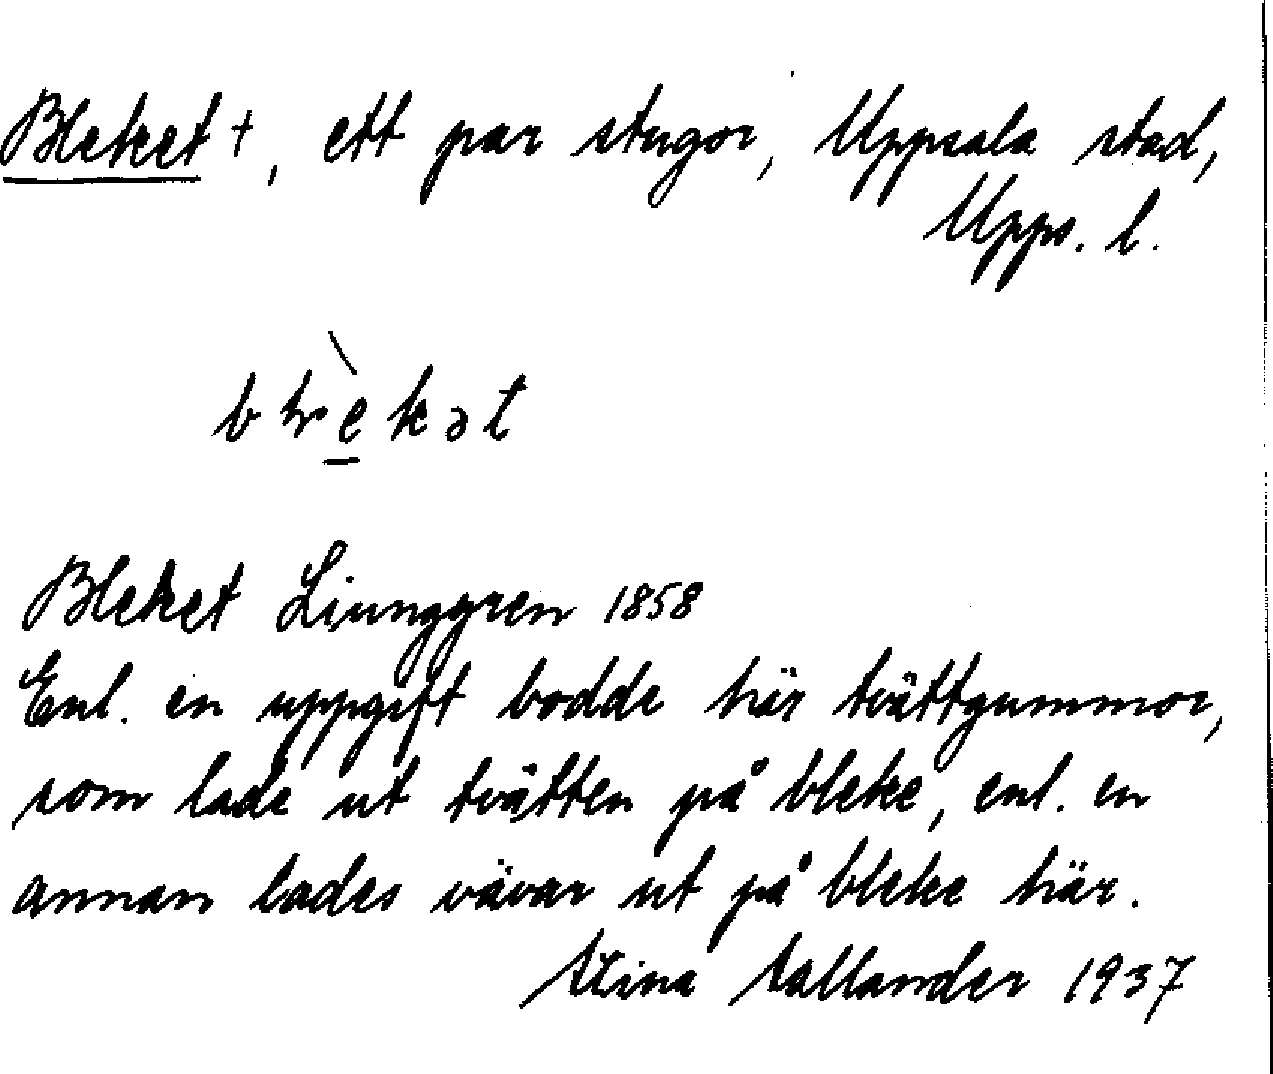 Bleket †, ett par stugor, Uppsala stad,
Upps. l.
Bleket Liunggren 1858
Enl. en uppgift bodde här tvättgummor,
som lade ut tvätten på bleke, enl. en
annan lades vävar ut på bleke här.
Stina Sallander 1937